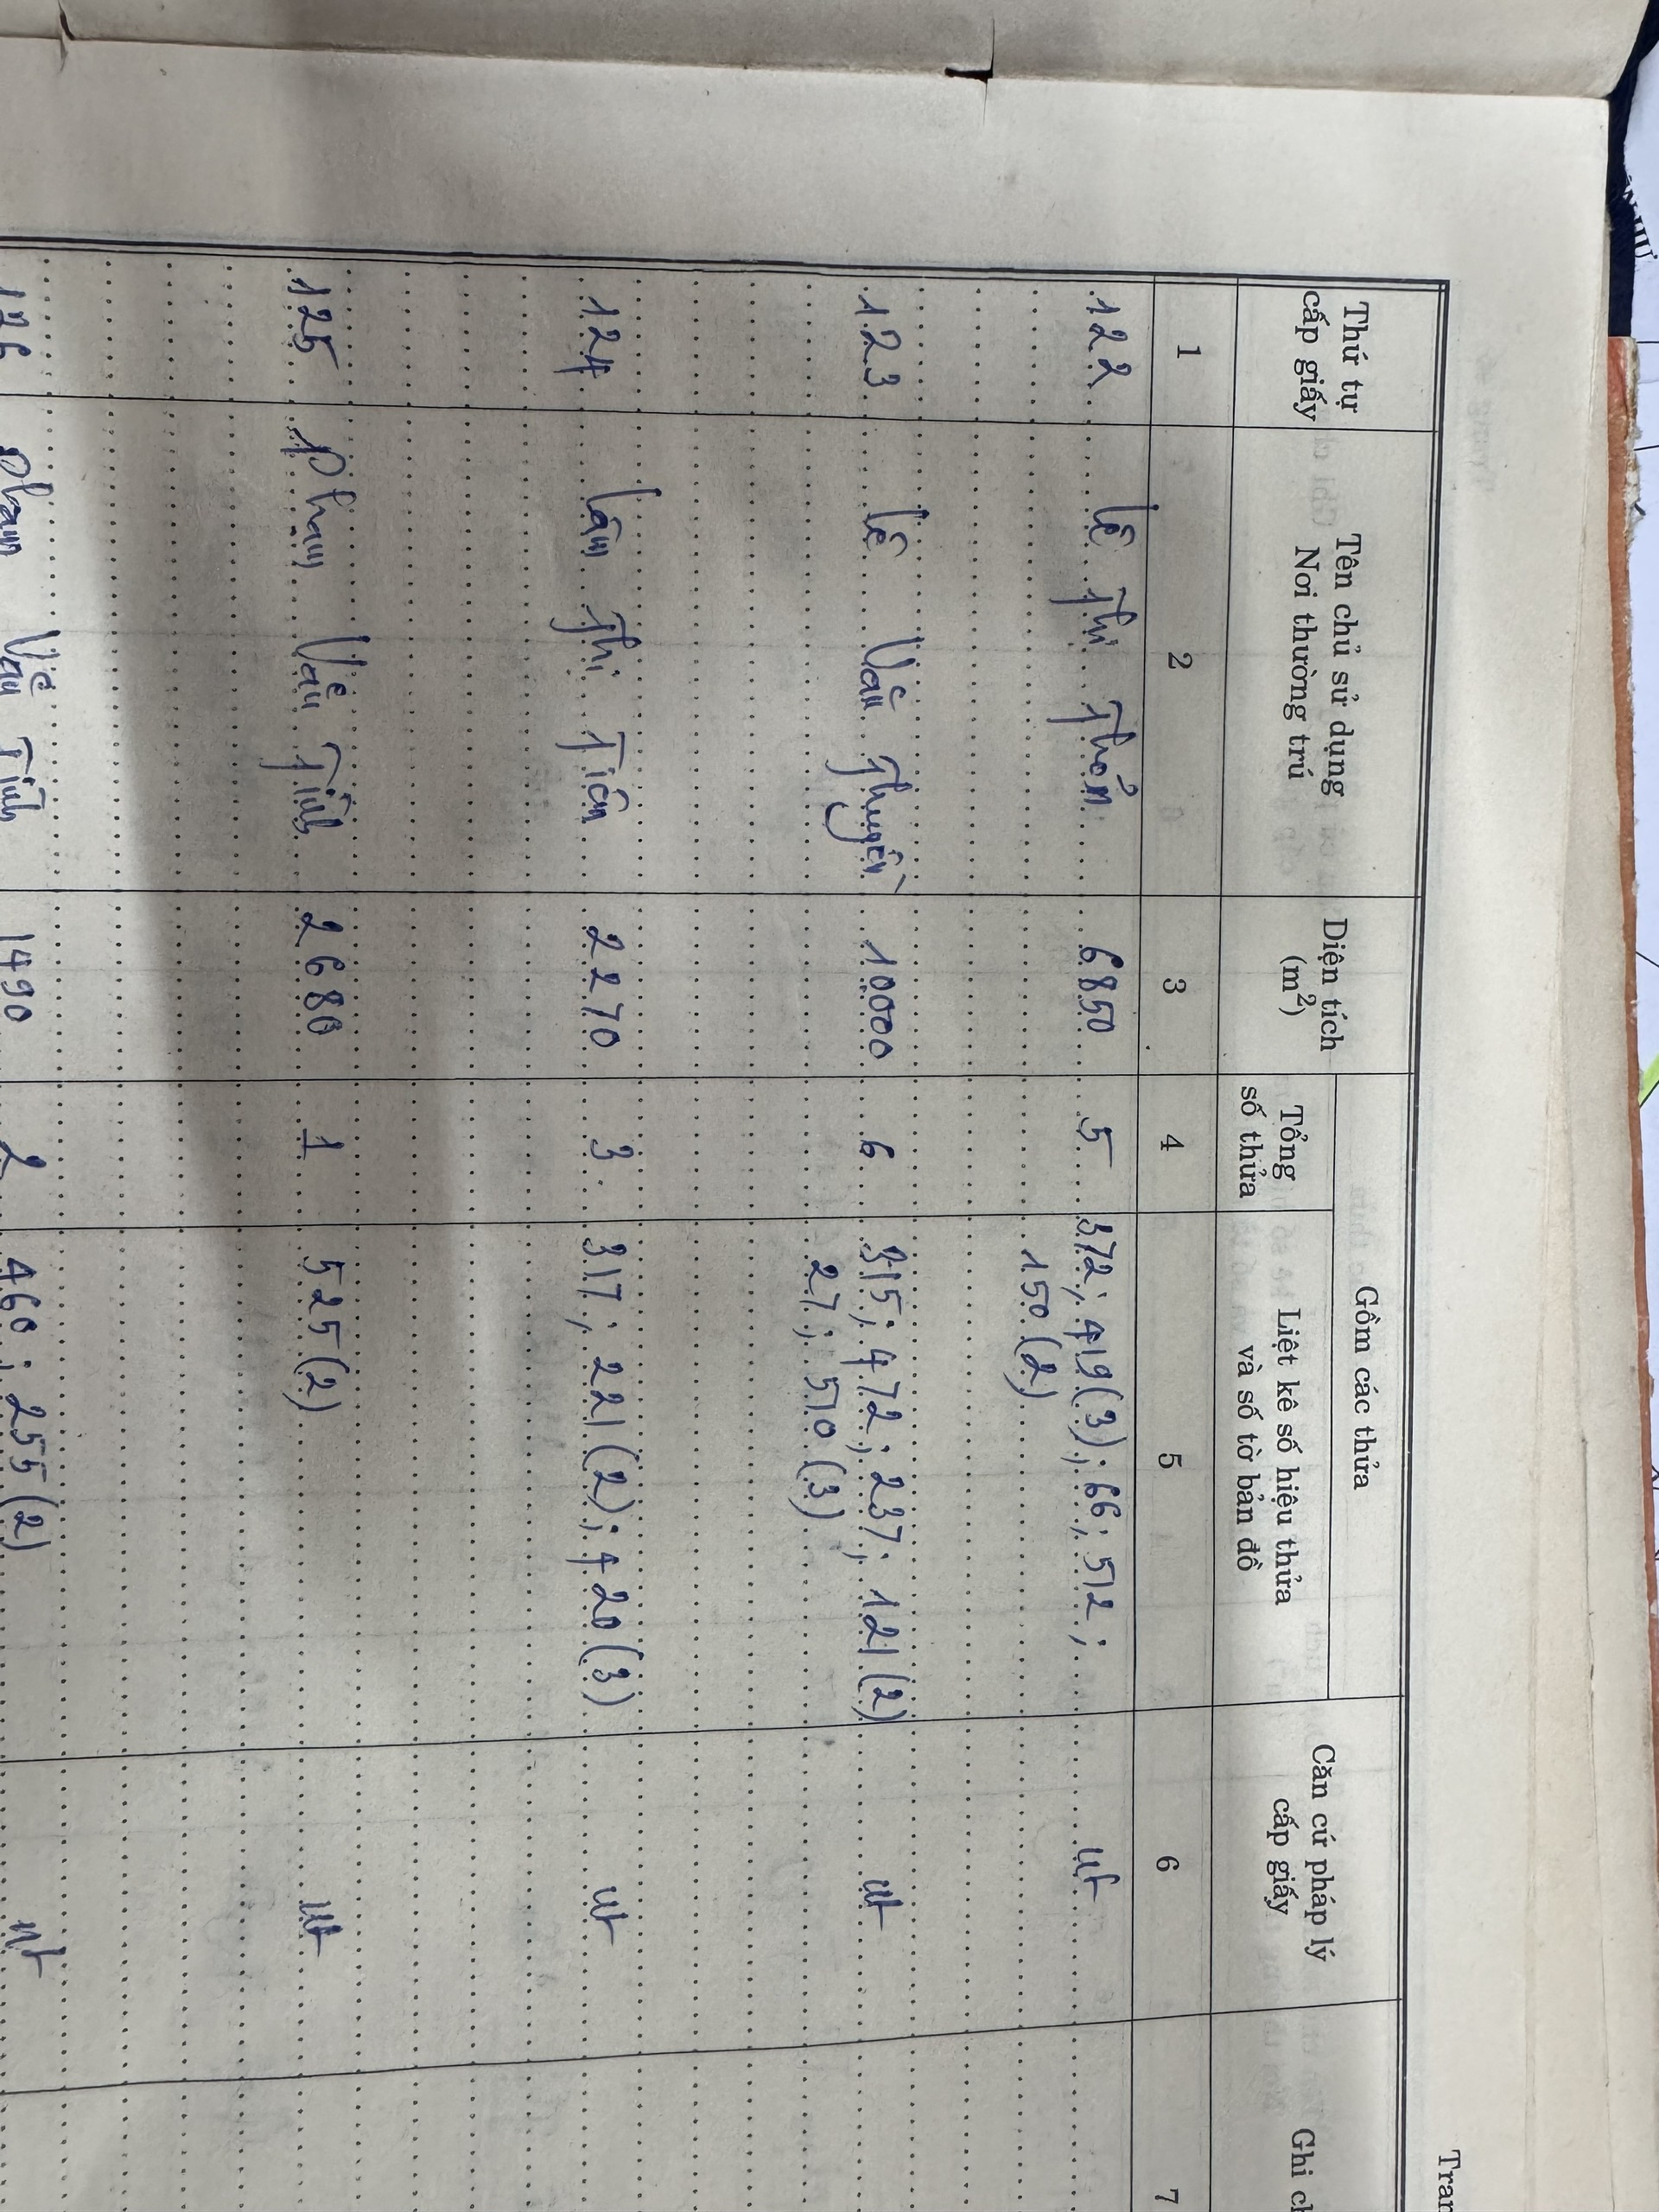 Tran
Thứ tự cấp giấy
Tên chủ sử dụng
Nơi thường trú
Diện tích
(m²)
Gồm các thửa
Tổng số thửa
Liệt kê số hiệu thửa
và số tờ bản đồ
Căn cứ pháp lý
cấp giấy
Ghi ch
1 2 3 4 5 6 7
122 Lê Thị Thỏn 6850 5 372; 419(3); 66; 512; nt
150(2)
123 Lê Văn Thuyền 10000 6 315; 472; 237; 121(2) nt
27; 510(3)
124 Lâm Thị Tiên 2270 3 317; 221(2); 420(3) nt
125 Phạm Văn Tỉnh 2680 1 525(2) nt
126 Phạm Văn 1490 2 460; 255(2) nt